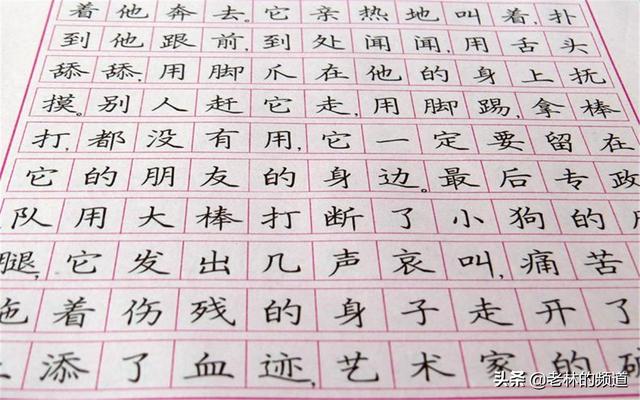 着他奔去。它亲热地叫着,扑
到他跟前,到处闻闻,用舌头
舔舔,用脚爪在他的身上抚
摸。别人赶它走,用脚踢,拿棒
打,都没有用,它一定要留在
它的朋友的身边。最后专政
队用大棒打断了小狗的
腿,它发出几声哀叫,痛苦
拖着伤残的身子走开了
添了血迹,艺术家的
头条 @老林的频道